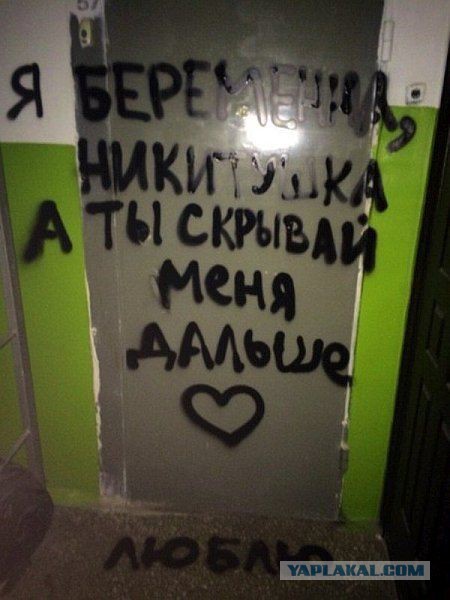 57
Я БЕРЕМЕННА,
НИКИТУШКА
А ТЫ СКРЫВАЙ
МЕНЯ
ДАЛЬШЕ
ЛЮБЛЮ
YAPLAKAL.COM